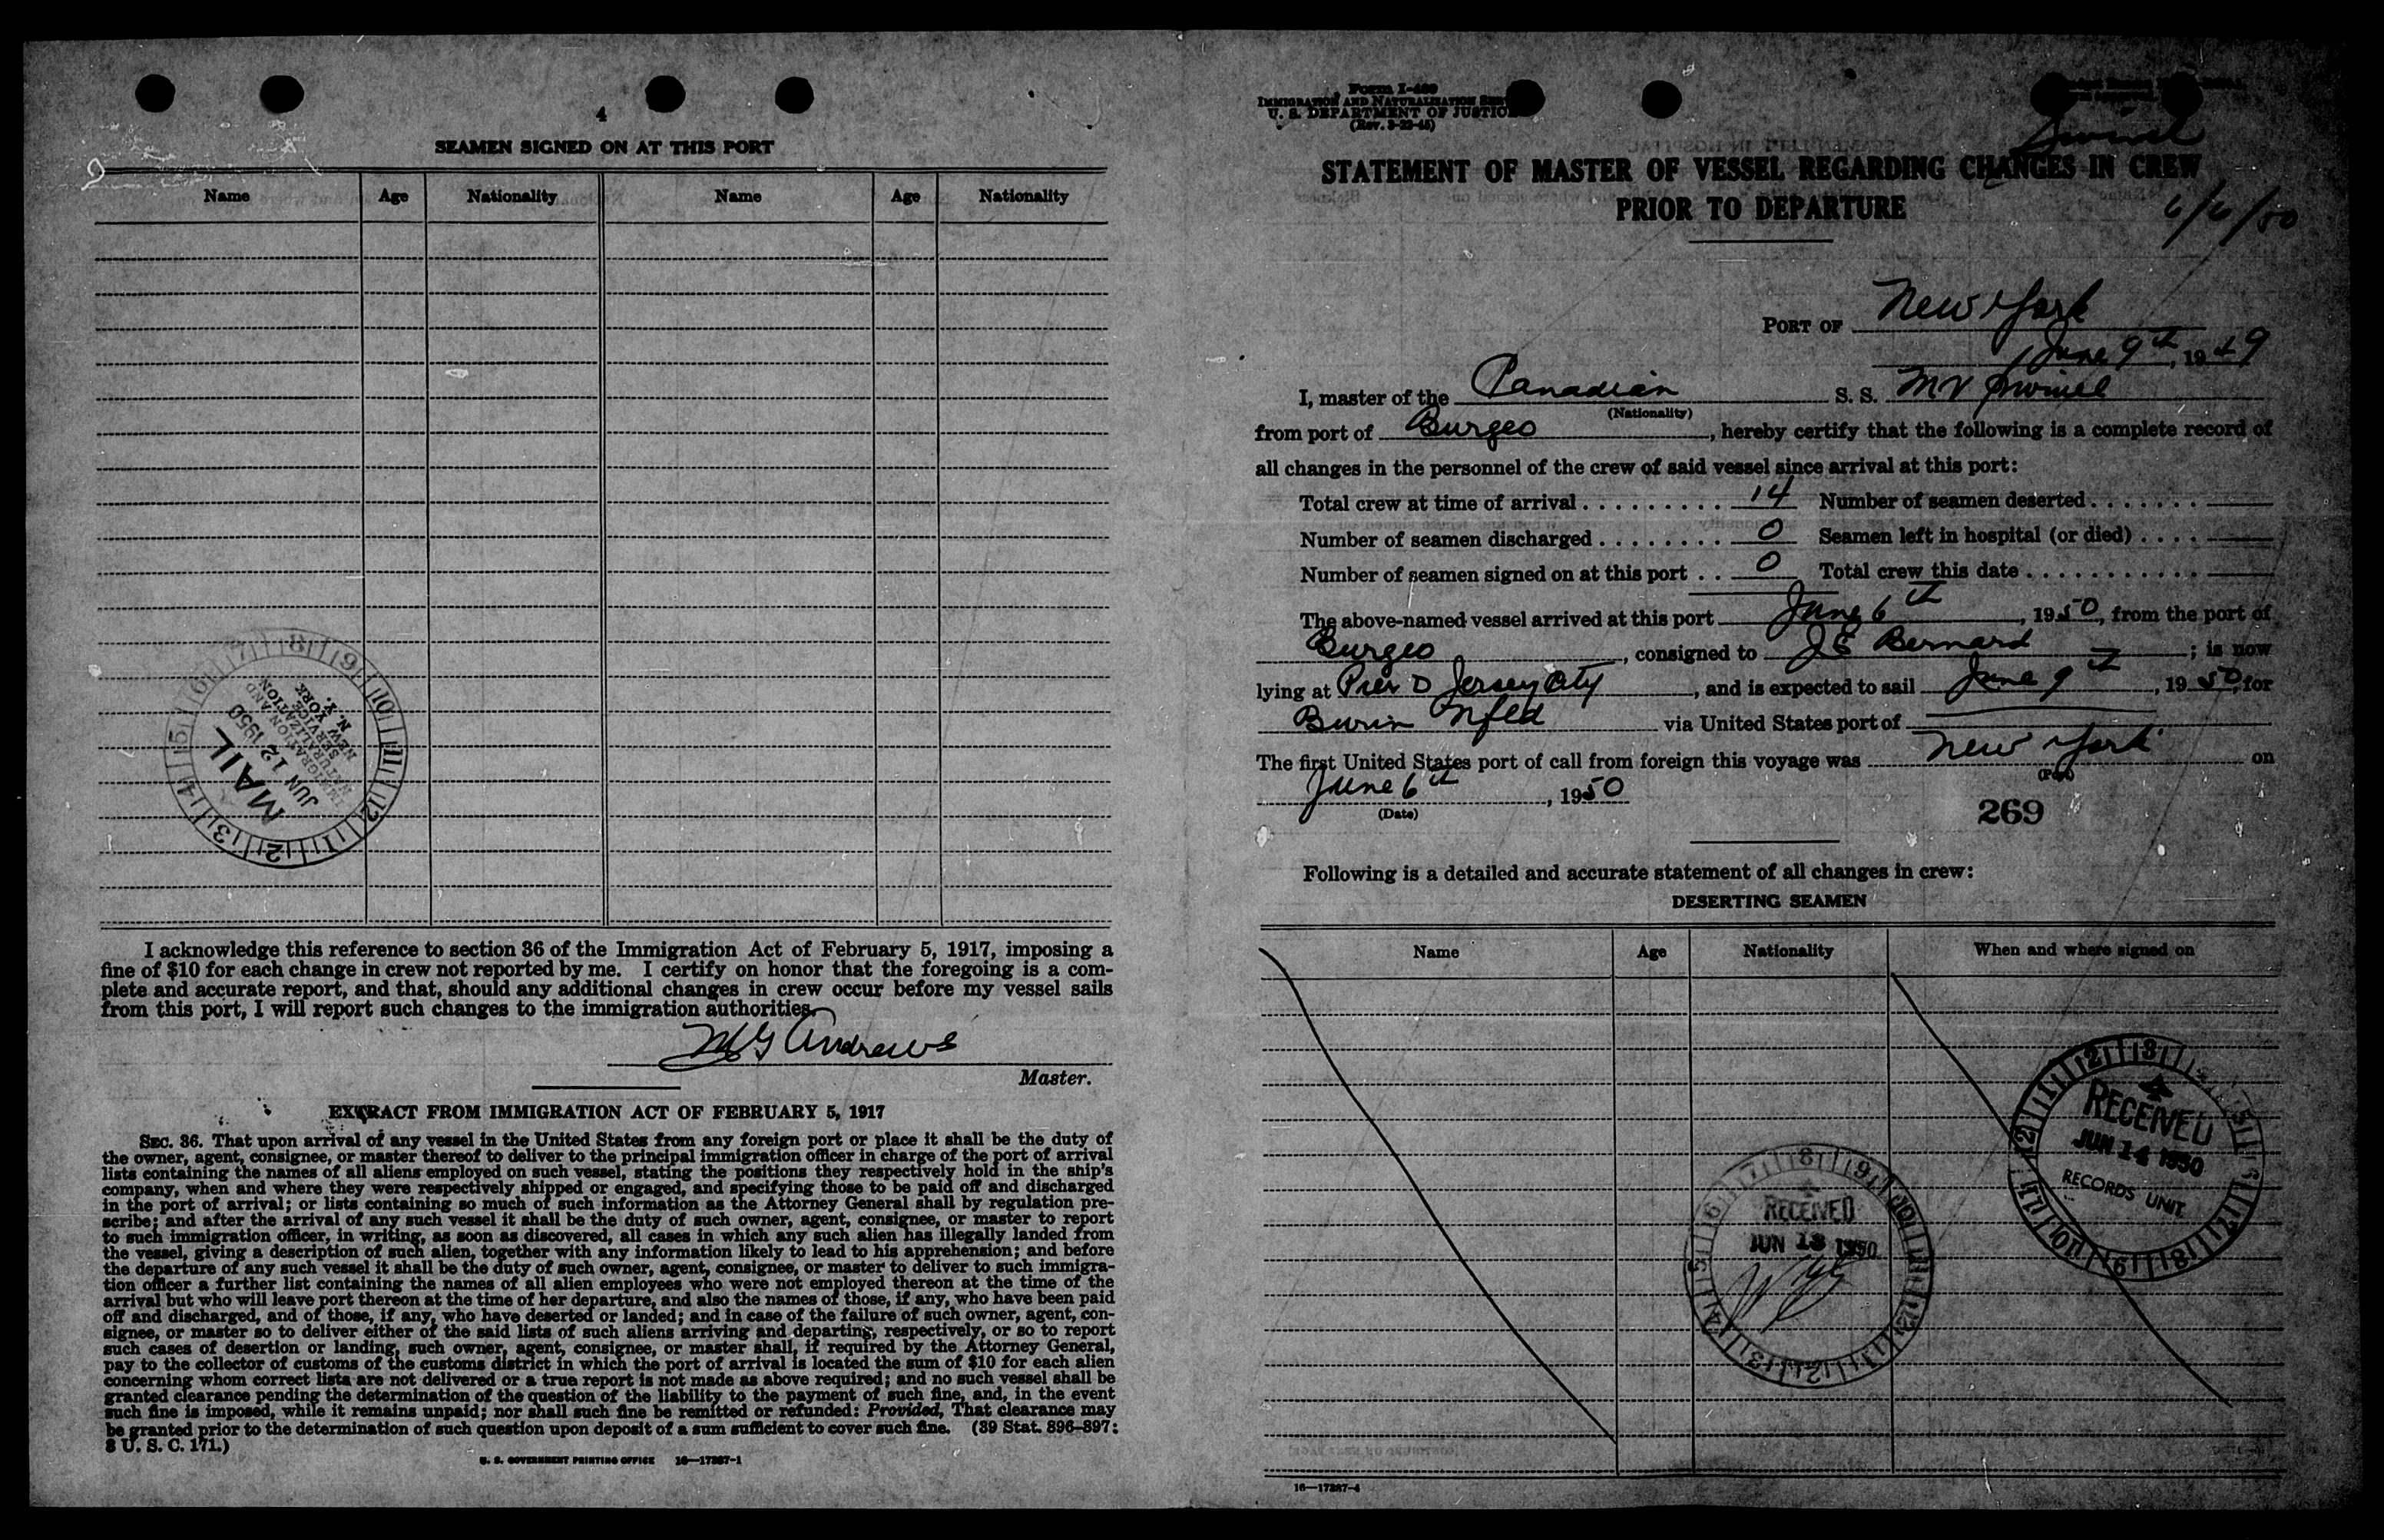 4
SEAMEN SIGNED ON AT THIS PORT
Name Age Nationality Name Age Nationality
MAIL
JUN 12 1950
IMMIGRATION AND
NATURALIZATION
SERVICE
NEW YORK, N. Y.
I acknowledge this reference to section 36 of the Immigration Act of February 5, 1917, imposing a
fine of $10 for each change in crew not reported by me. I certify on honor that the foregoing is a com-
plete and accurate report, and that, should any additional changes in crew occur before my vessel sails
from this port, I will report such changes to the immigration authorities.
Andrews
Master.
EXTRACT FROM IMMIGRATION ACT OF FEBRUARY 5, 1917
SEC. 36. That upon arrival of any vessel in the United States from any foreign port or place it shall be the duty of
the owner, agent, consignee, or master thereof to deliver to the principal immigration officer in charge of the port of arrival
lists containing the names of all aliens employed on such vessel, stating the positions they respectively hold in the ship's
company, when and where they were respectively shipped or engaged, and specifying those to be paid off and discharged
in the port of arrival; or lists containing so much of such information as the Attorney General shall by regulation pre-
scribe; and after the arrival of any such vessel it shall be the duty of such owner, agent, consignee, or master to report
to such immigration officer, in writing, as soon as discovered, all cases in which any such alien has illegally landed from
the vessel, giving a description of such alien, together with any information likely to lead to his apprehension; and before
the departure of any such vessel it shall be the duty of such owner, agent, consignee, or master to deliver to such immigra-
tion officer a further list containing the names of all alien employees who were not employed thereon at the time of the
arrival but who will leave port thereon at the time of her departure, and also the names of those, if any, who have been paid
off and discharged, and of those, if any, who have deserted or landed; and in case of the failure of such owner, agent, con-
signee, or master so to deliver either of the said lists of such aliens arriving and departing, respectively, or so to report
such cases of desertion or landing, such owner, agent, consignee, or master shall, if required by the Attorney General,
pay to the collector of customs of the customs district in which the port of arrival is located the sum of $10 for each alien
concerning whom correct lists are not delivered or a true report is not made as above required; and no such vessel shall be
granted clearance pending the determination of the question of the liability to the payment of such fine, and, in the event
such fine is imposed, while it remains unpaid; nor shall such fine be remitted or refunded: Provided, That clearance may
be granted prior to the determination of such question upon deposit of a sum sufficient to cover such fine. (39 Stat. 896–897;
8 U. S. C. 171.)
U. S. GOVERNMENT PRINTING OFFICE 16—17387-1
IMMIGRATION AND NATURALIZATION
U. S. DEPARTMENT OF JUSTICE
STATEMENT OF MASTER OF VESSEL REGARDING CHANGES IN CREW
PRIOR TO DEPARTURE
6/6/50
PORT OF New York
June 9th, 1949
I, master of the Canadian S. S. MV
(Nationality)
from port of Burgeo, hereby certify that the following is a complete record of
all changes in the personnel of the crew of said vessel since arrival at this port:
Total crew at time of arrival 14 Number of seamen deserted
Number of seamen discharged 0 Seamen left in hospital (or died)
Number of seamen signed on at this port 0 Total crew this date
The above-named vessel arrived at this port June 6th, 1950, from the port of
Burgeo, consigned to J E Bernard; is now
lying at Pier D Jersey City, and is expected to sail June 9th, 1950, for
Burin Nfld via United States port of
The first United States port of call from foreign this voyage was New York on
(Port)
June 6th, 1950
(Date)
269
Following is a detailed and accurate statement of all changes in crew:
DESERTING SEAMEN
Name Age Nationality When and where signed on
RECEIVED
JUN 14 1950
RECORDS UNIT.
RECEIVED
JUN 13 1950
16—17387-4